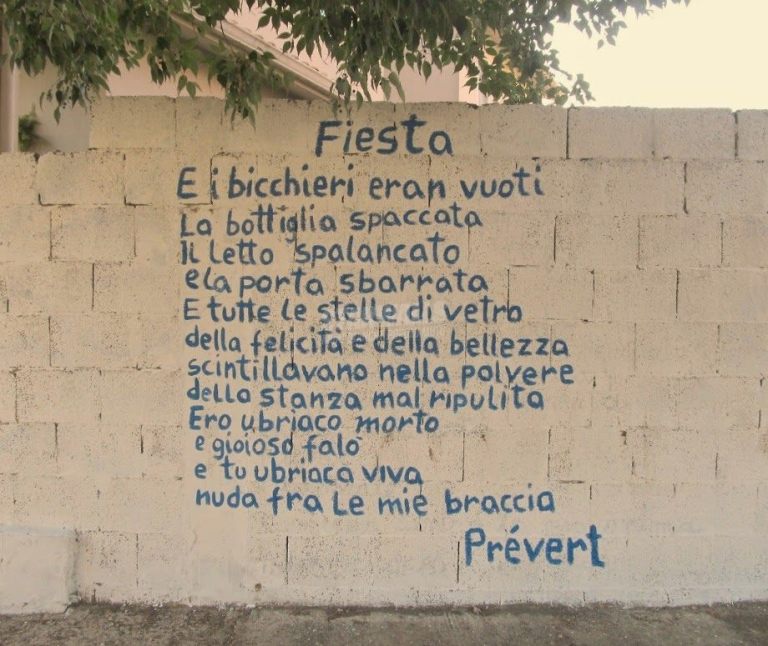 Fiesta
E i bicchieri eran vuoti
La bottiglia spaccata
Il Letto spalancato
e la porta sbarrata
E tutte le stelle di vetro
della felicità e della bellezza
scintillavano nella polvere
della stanza mal ripulita
Ero ubriaco morto
e gioioso falò
e tu ubriaca viva
nuda fra Le mie braccia
Prévert